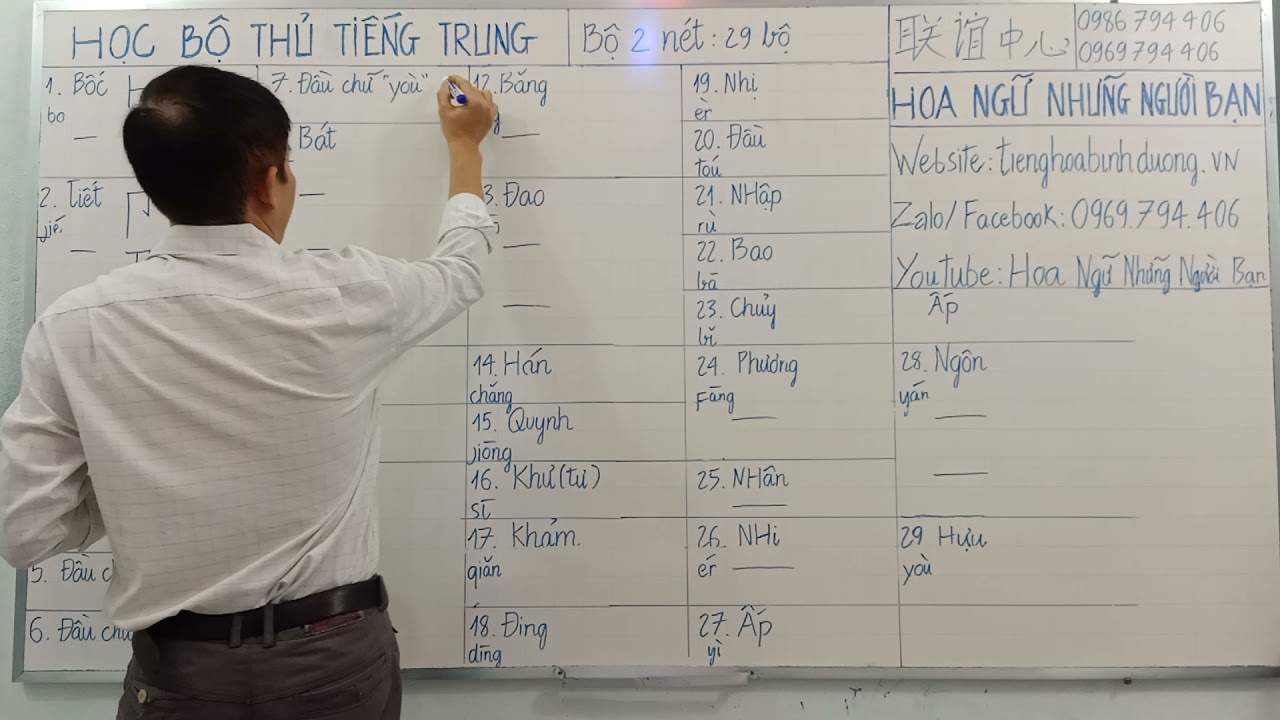 HỌC BỘ THỦ TIẾNG TRUNG
Bộ 2 nét: 29 bộ
联谊中心
0986 794 406
0969 794 406
HOA NGỮ NHỮNG NGƯỜI BẠN
Website: tienghoabinhduong.VN
Zalo/Facebook: 0969.794.406
Youtube: Hoa Ngữ Những Người Bạn
1. Bốc
bo
2. Tiết
jié.
5. Đầu
6. Đầu chữ
7. Đầu chữ "yoù"
Bát
12. Băng
Đao
14. Hán
chǎng
15. Quynh
jiōng
16. Khư (tư)
sī
17. Khảm.
qiǎn
18. Đing
dīng
19. Nhị
èr
20. Đầu
toú
21. NHập
rù
22. Bao
bā
23. Chủy
bǐ
24. Phương
Fāng
25. NHân
26. NHi
ér
27. Ấp
yì
Ấp
28. Ngôn
yán
29 Hựu
yoù